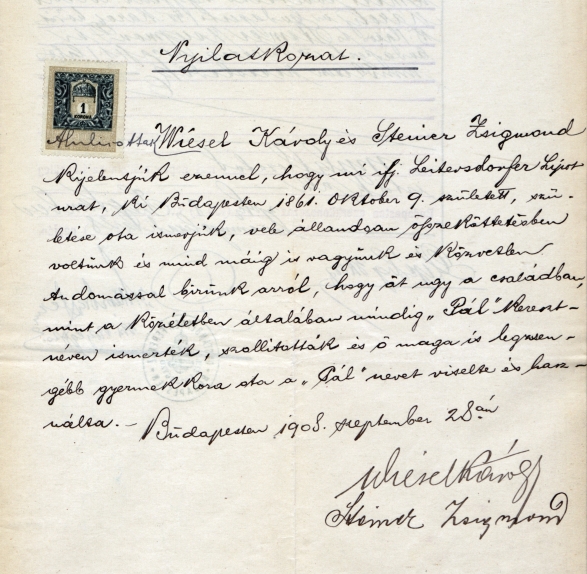 Nyilatkozat.
1
KORONA
Alulirottak Wiesel Károly és Steiner Zsigmond
kijelentjük ezennel, hogy mi ifj. Leitersdorfer Lipót
urat, ki Budapesten 1861. Oktober 9. született, szü-
letése ota ismerjük, vele állandoan összeköttetésben
voltunk és mind máig is vagyunk és közvetlen
tudomással birunk arról, hogy őt ugy a családban,
mint a közéletben általában mindig „Pál" kereszt-
néven ismerték, szollitották és ő maga is legzsen-
gébb gyermekkora ota a „Pál" nevet viselte és hasz-
nálta. –
Budapesten 1908. szeptember 28án
Wiesel Károly
Steiner Zsigmond